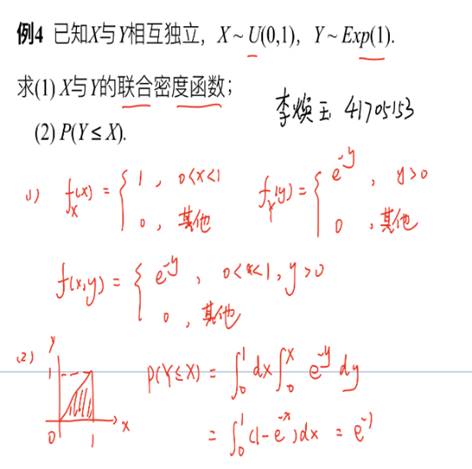 例4 已知X与Y相互独立，X~U(0,1)，Y~Exp(1).
求(1) X与Y的联合密度函数；
李焕玉 41705153
(2) P(Y≤X).
(1) f_X(x) = { 1 , 0<x<1
0 , 其他
f_Y(y) = { e^{-y} , y>0
0 , 其他
f(x,y) = { e^{-y} , 0<x<1, y>0
0 , 其他
(2) y 1 0 1 x
P(Y≤X) = ∫_0^1 dx ∫_0^x e^{-y} dy
= ∫_0^1 (1-e^{-x}) dx = e^{-1}